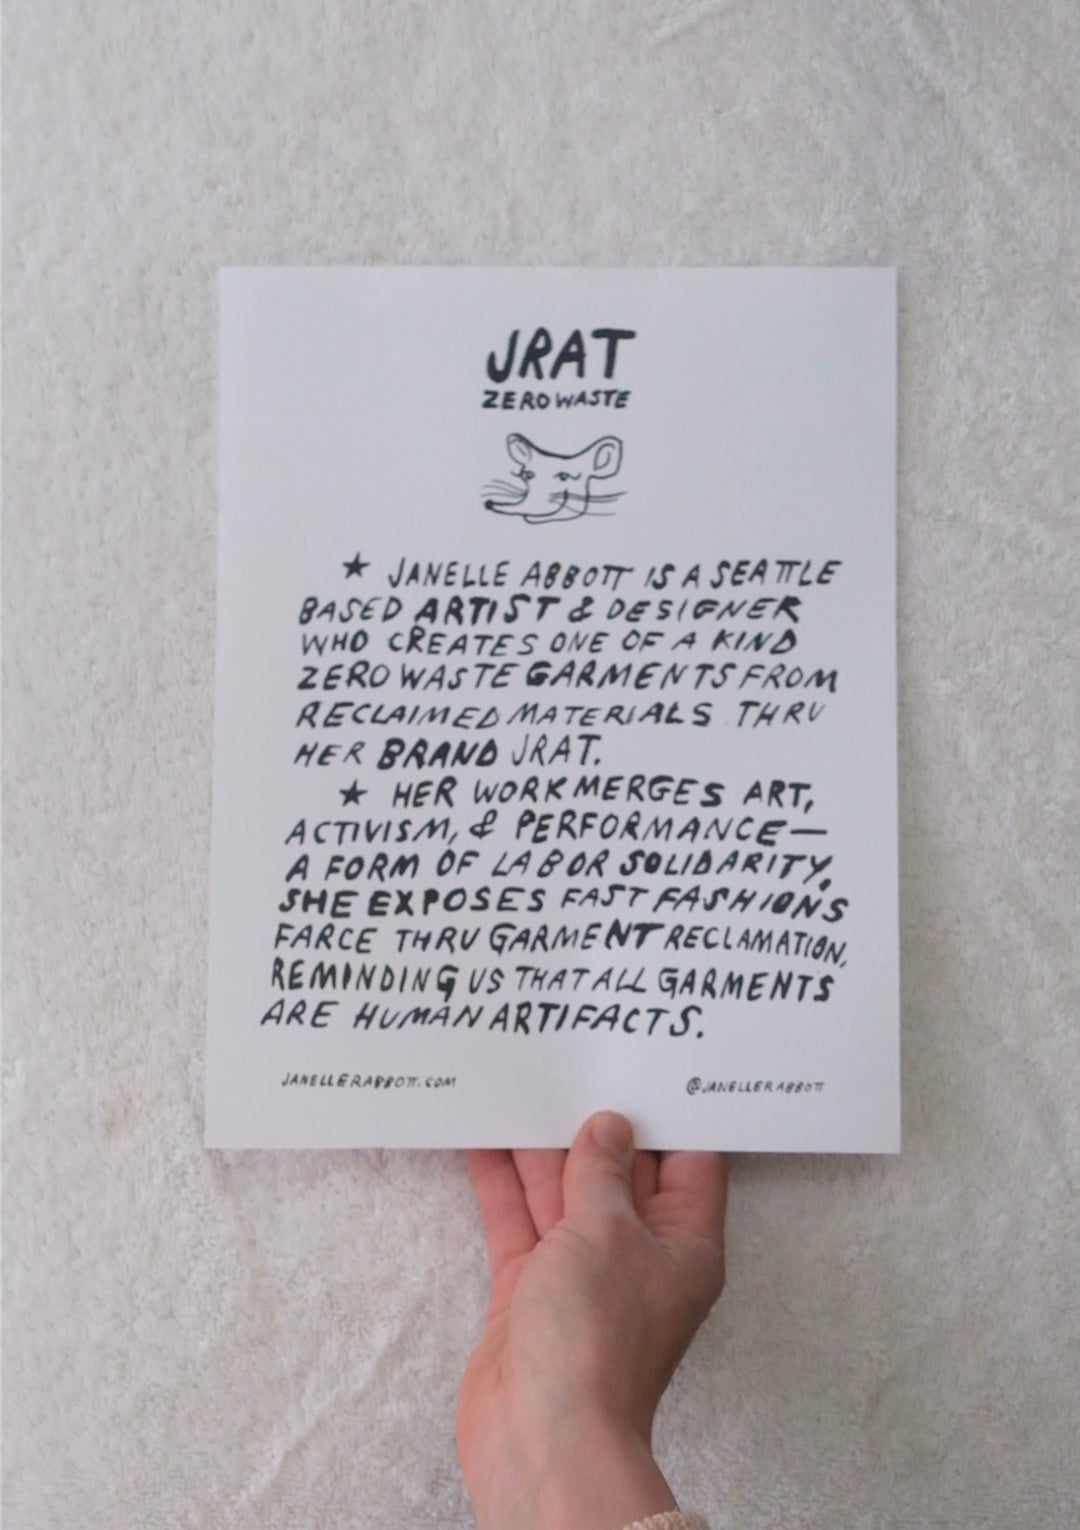 JRAT
ZERO WASTE
★ JANELLE ABBOTT IS A SEATTLE
BASED ARTIST & DESIGNER
WHO CREATES ONE OF A KIND
ZERO WASTE GARMENTS FROM
RECLAIMED MATERIALS THRU
HER BRAND JRAT.
★ HER WORK MERGES ART,
ACTIVISM, & PERFORMANCE—
A FORM OF LABOR SOLIDARITY,
SHE EXPOSES FAST FASHION'S
FARCE THRU GARMENT RECLAMATION,
REMINDING US THAT ALL GARMENTS
ARE HUMAN ARTIFACTS.
JANELLERABBOTT.COM
@JANELLERABBOTT